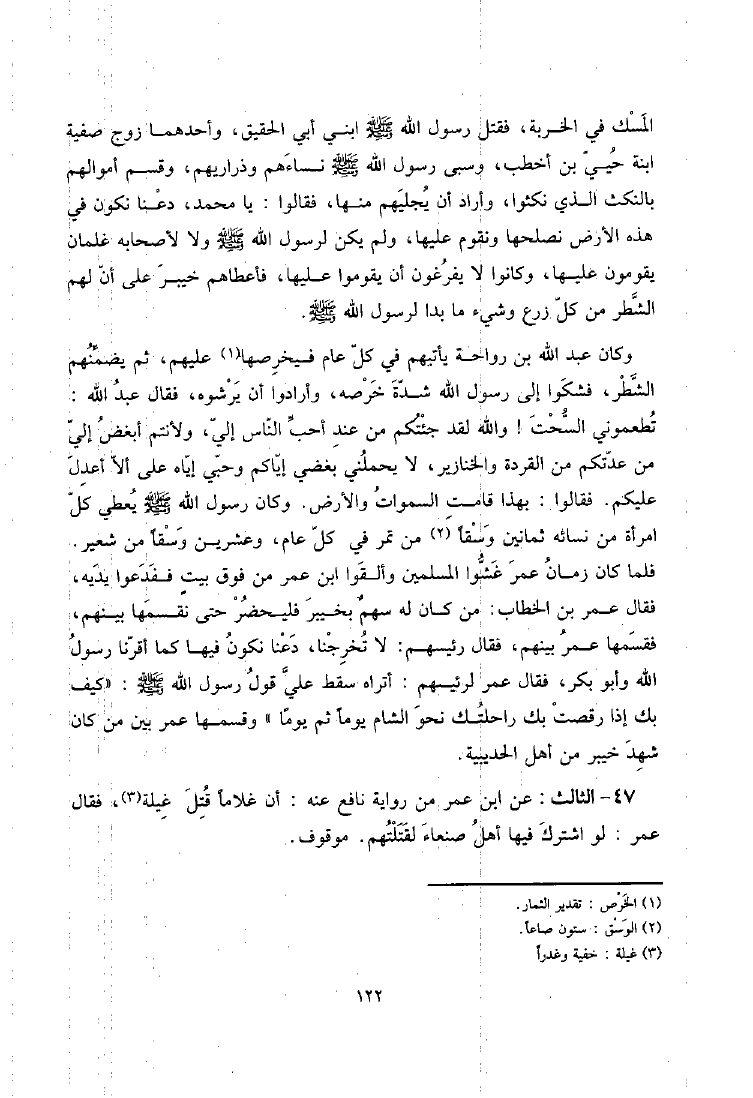 المَسْك في الخربة، فقتل رسول الله ﷺ ابني أبي الحقيق، وأحدهما زوج صفية
ابنة حُييّ بن أخطب، وسبى رسول الله ﷺ نساءَهم وذراريهم، وقسم أموالهم
بالنكث الذي نكثوا، وأراد أن يُجليَهم منها، فقالوا : يا محمد، دعْنا نكون في
هذه الأرض نصلحها ونقوم عليها، ولم يكن لرسول الله ﷺ ولا لأصحابه غلمان
يقومون عليها، وكانوا لا يفرُغون أن يقوموا عليها، فأعطاهم خيبرَ على أنّ لهم
الشَّطر من كلّ زرع وشيء ما بدا لرسول الله ﷺ.
وكان عبد الله بن رواحة يأتيهم في كلّ عام فيخرِصها(١) عليهم، ثم يضمّنُهم
الشَّطْر، فشكَوا إلى رسول الله شدّةَ خَرْصه، وأرادوا أن يَرْشوه، فقال عبدُ الله :
تُطعموني السُّحْتَ ! والله لقد جئْتُكم من عندِ أحبِّ النّاس إليّ، ولأنتم أبغضُ إليّ
من عدّتكم من القردة والخنازير، لا يحملُني بغضي إيّاكم وحبّي إيّاه على ألاّ أعدِلَ
عليكم. فقالوا : بهذا قامتِ السمواتُ والأرض. وكان رسول الله ﷺ يُعطي كلّ
امرأة من نسائه ثمانين وَسْقاً (٢) من تمر في كلّ عام، وعشرين وَسْقاً من شعير.
فلما كان زمانُ عمرَ غَشُّوا المسلمين وألقَوا ابن عمر من فوق بيتٍ ففَدَعوا يدَيه،
فقال عمر بن الخطاب: من كان له سهمٌ بخيبرَ فليحضُرْ حتى نقسمَها بينهم،
فقسَمها عمرُ بينهم، فقال رئيسهم: لا تُخرِجْنا، دَعْنا نكونُ فيها كما أقرّنا رسولُ
الله وأبو بكر، فقال عمر لرئيسهم : أتراه سقط عليَّ قولُ رسول الله ﷺ : «كيف
بك إذا رقصتْ بك راحلتُك نحوَ الشام يوماً ثم يومًا » وقسمها عمر بين من كان
شهِدَ خيبر من أهل الحديبية.
٤٧- الثالث : عن ابن عمر من رواية نافع عنه : أن غلاماً قُتِلَ غِيلة(٣)، فقال
عمر : لو اشتركَ فيها أهلُ صنعاءَ لقَتَلْتُهم. موقوف.
(١) الخَرْص : تقدير الثمار.
(٢) الوَسْق : ستون صاعاً.
(٣) غيلة : خفية وغدراً
١٢٢